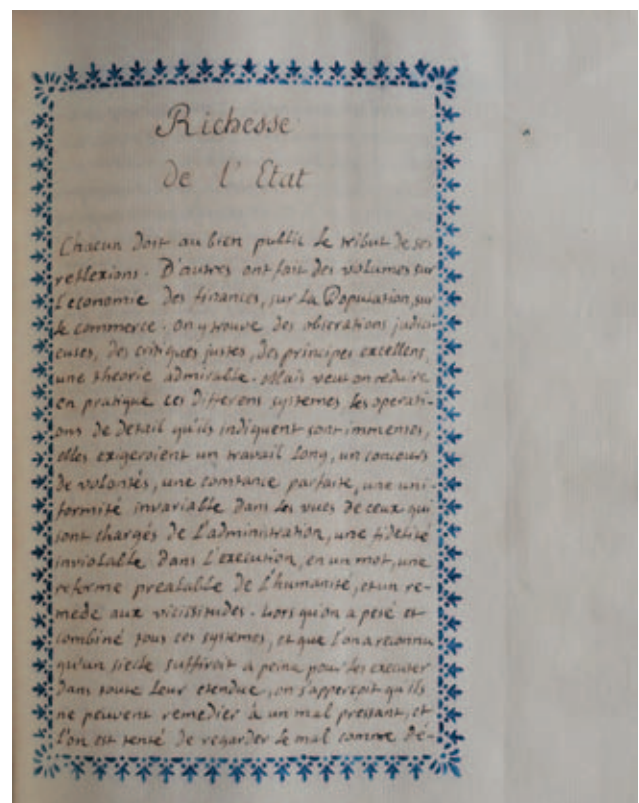 Richesse
de l'Etat
Chacun doit au bien public le tribut de ses
reflexions. D'autres ont fait des volumes sur
l'economie des finances, sur la Population, sur
le commerce. on y trouve des obserations judici-
euses, des critiques justes, des principes excellens,
une theorie admirable. Mais veut on reduire
en pratique ces differens systemes, les operati-
ons de detail qu'ils indiquent sont immenses,
elles exigeroient un travail long, un concours
de volontés, une constance parfaite, une uni-
formité invariable dans les vues de ceux qui
sont chargés de l'administration, une fidelité
inviolable dans l'execution, en un mot, une
reforme prealable de l'humanité, et un re-
mede aux vicissitudes. Lors qu'on a pesé et
combiné tous ces systemes, et que l'on a reconnu
qu'un siecle suffiroit a peine pour les executer
dans toute leur etendue, on s'apperçoit qu'ils
ne peuvent remedier à un mal pressant, et
l'on est tenté de regarder le mal comme dé-